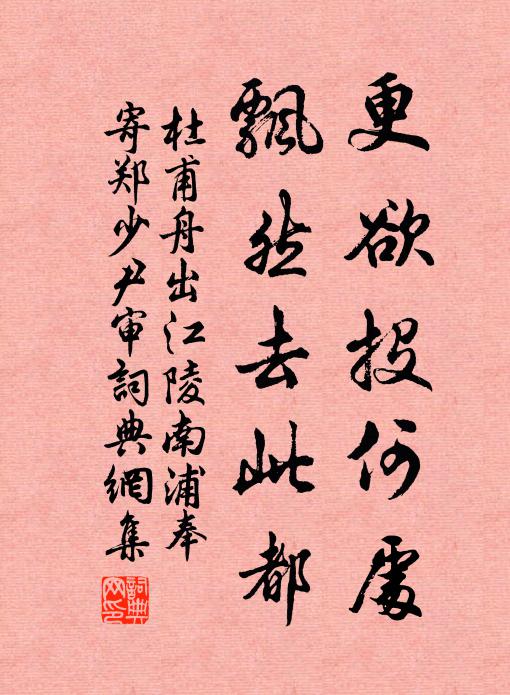 更欲投何處
飄然去此都
杜甫舟出江陵南浦奉
寄郑少尹审詞典網集
詞典网印